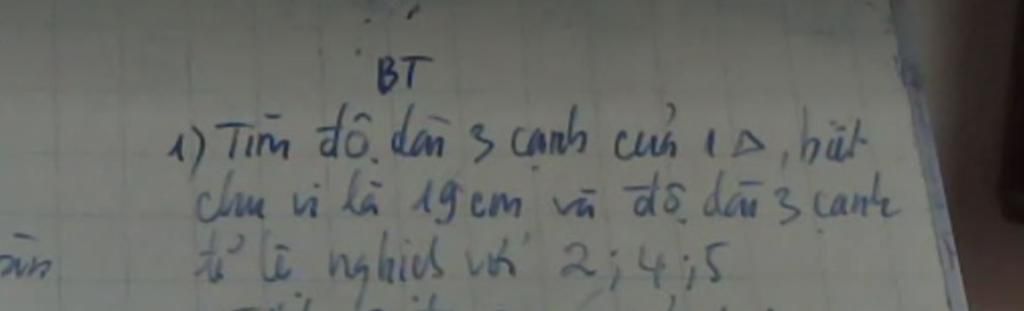 BT
1) Tìm độ dài 3 cạnh của 1 Δ, biết
chu vi là 19 cm và độ dài 3 cạnh
tỉ lệ nghịch với 2; 4; 5